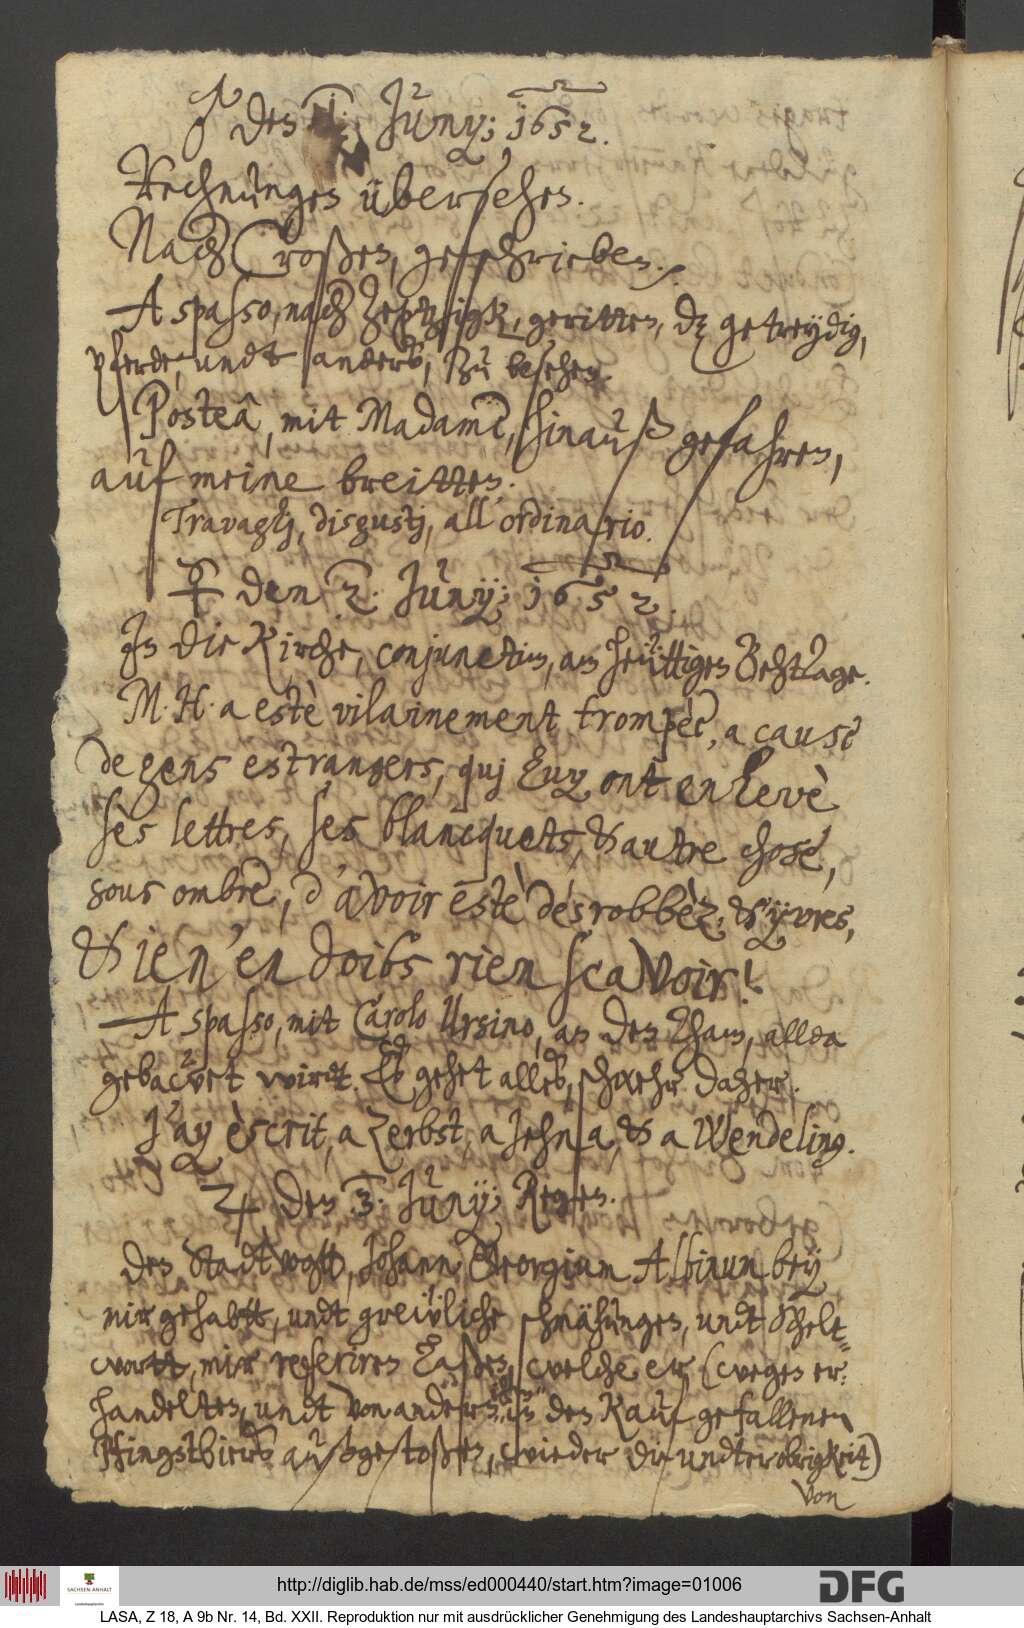 ♂ den 1. Juny; 1652.
Rechnungen übersehen.
Nach Croßen, geschrieben.
A spasso, nach Zeptzigk, geritten, dz getreydig,
pferde, undt anders, zu besehen.
Posteà, mit Madame, hinauß gefahren,
auf meine breitten.
Travaglj, disgustj, all' ordinario.
☿ den 2. Juny; 1652.
In die Kirche, conjunctim, am heüttigen Behttage.
M. H. a estè vilainement trompèe, a cause
de gens estrangers, quj luy ont enlevè
ses lettres, ses blancquets, & autre chose,
sous ombre, d'avoir estè desrobbèz, & yvres,
& ie n'en doibs rien sçavoir!
A spasso, mit Carolo Ursino, an den Tham, allda
gebawet wirdt. Es gehet alles, schwehr daher.
J'ay èscrit, a Zerbst, a Jehna, & a Wendelin.
♃ den 3. Juny; Regen.
Den Stadtvogtt, Johann Georgium Albinum bey
mir gehabtt, undt greüliche schmähungen, undt Schelt-
wortt, mir referiren laßen, welche er, (wegen er-
handelten, undt von andern, in den Kauf gefallenen
Pfingstbiers außgestoßen, wieder die undterobrigkeit)
von
http://diglib.hab.de/mss/ed000440/start.htm?image=01006
SACHSEN-ANHALT
Landeshauptarchiv
DFG
LASA, Z 18, A 9b Nr. 14, Bd. XXII. Reproduktion nur mit ausdrücklicher Genehmigung des Landeshauptarchivs Sachsen-Anhalt